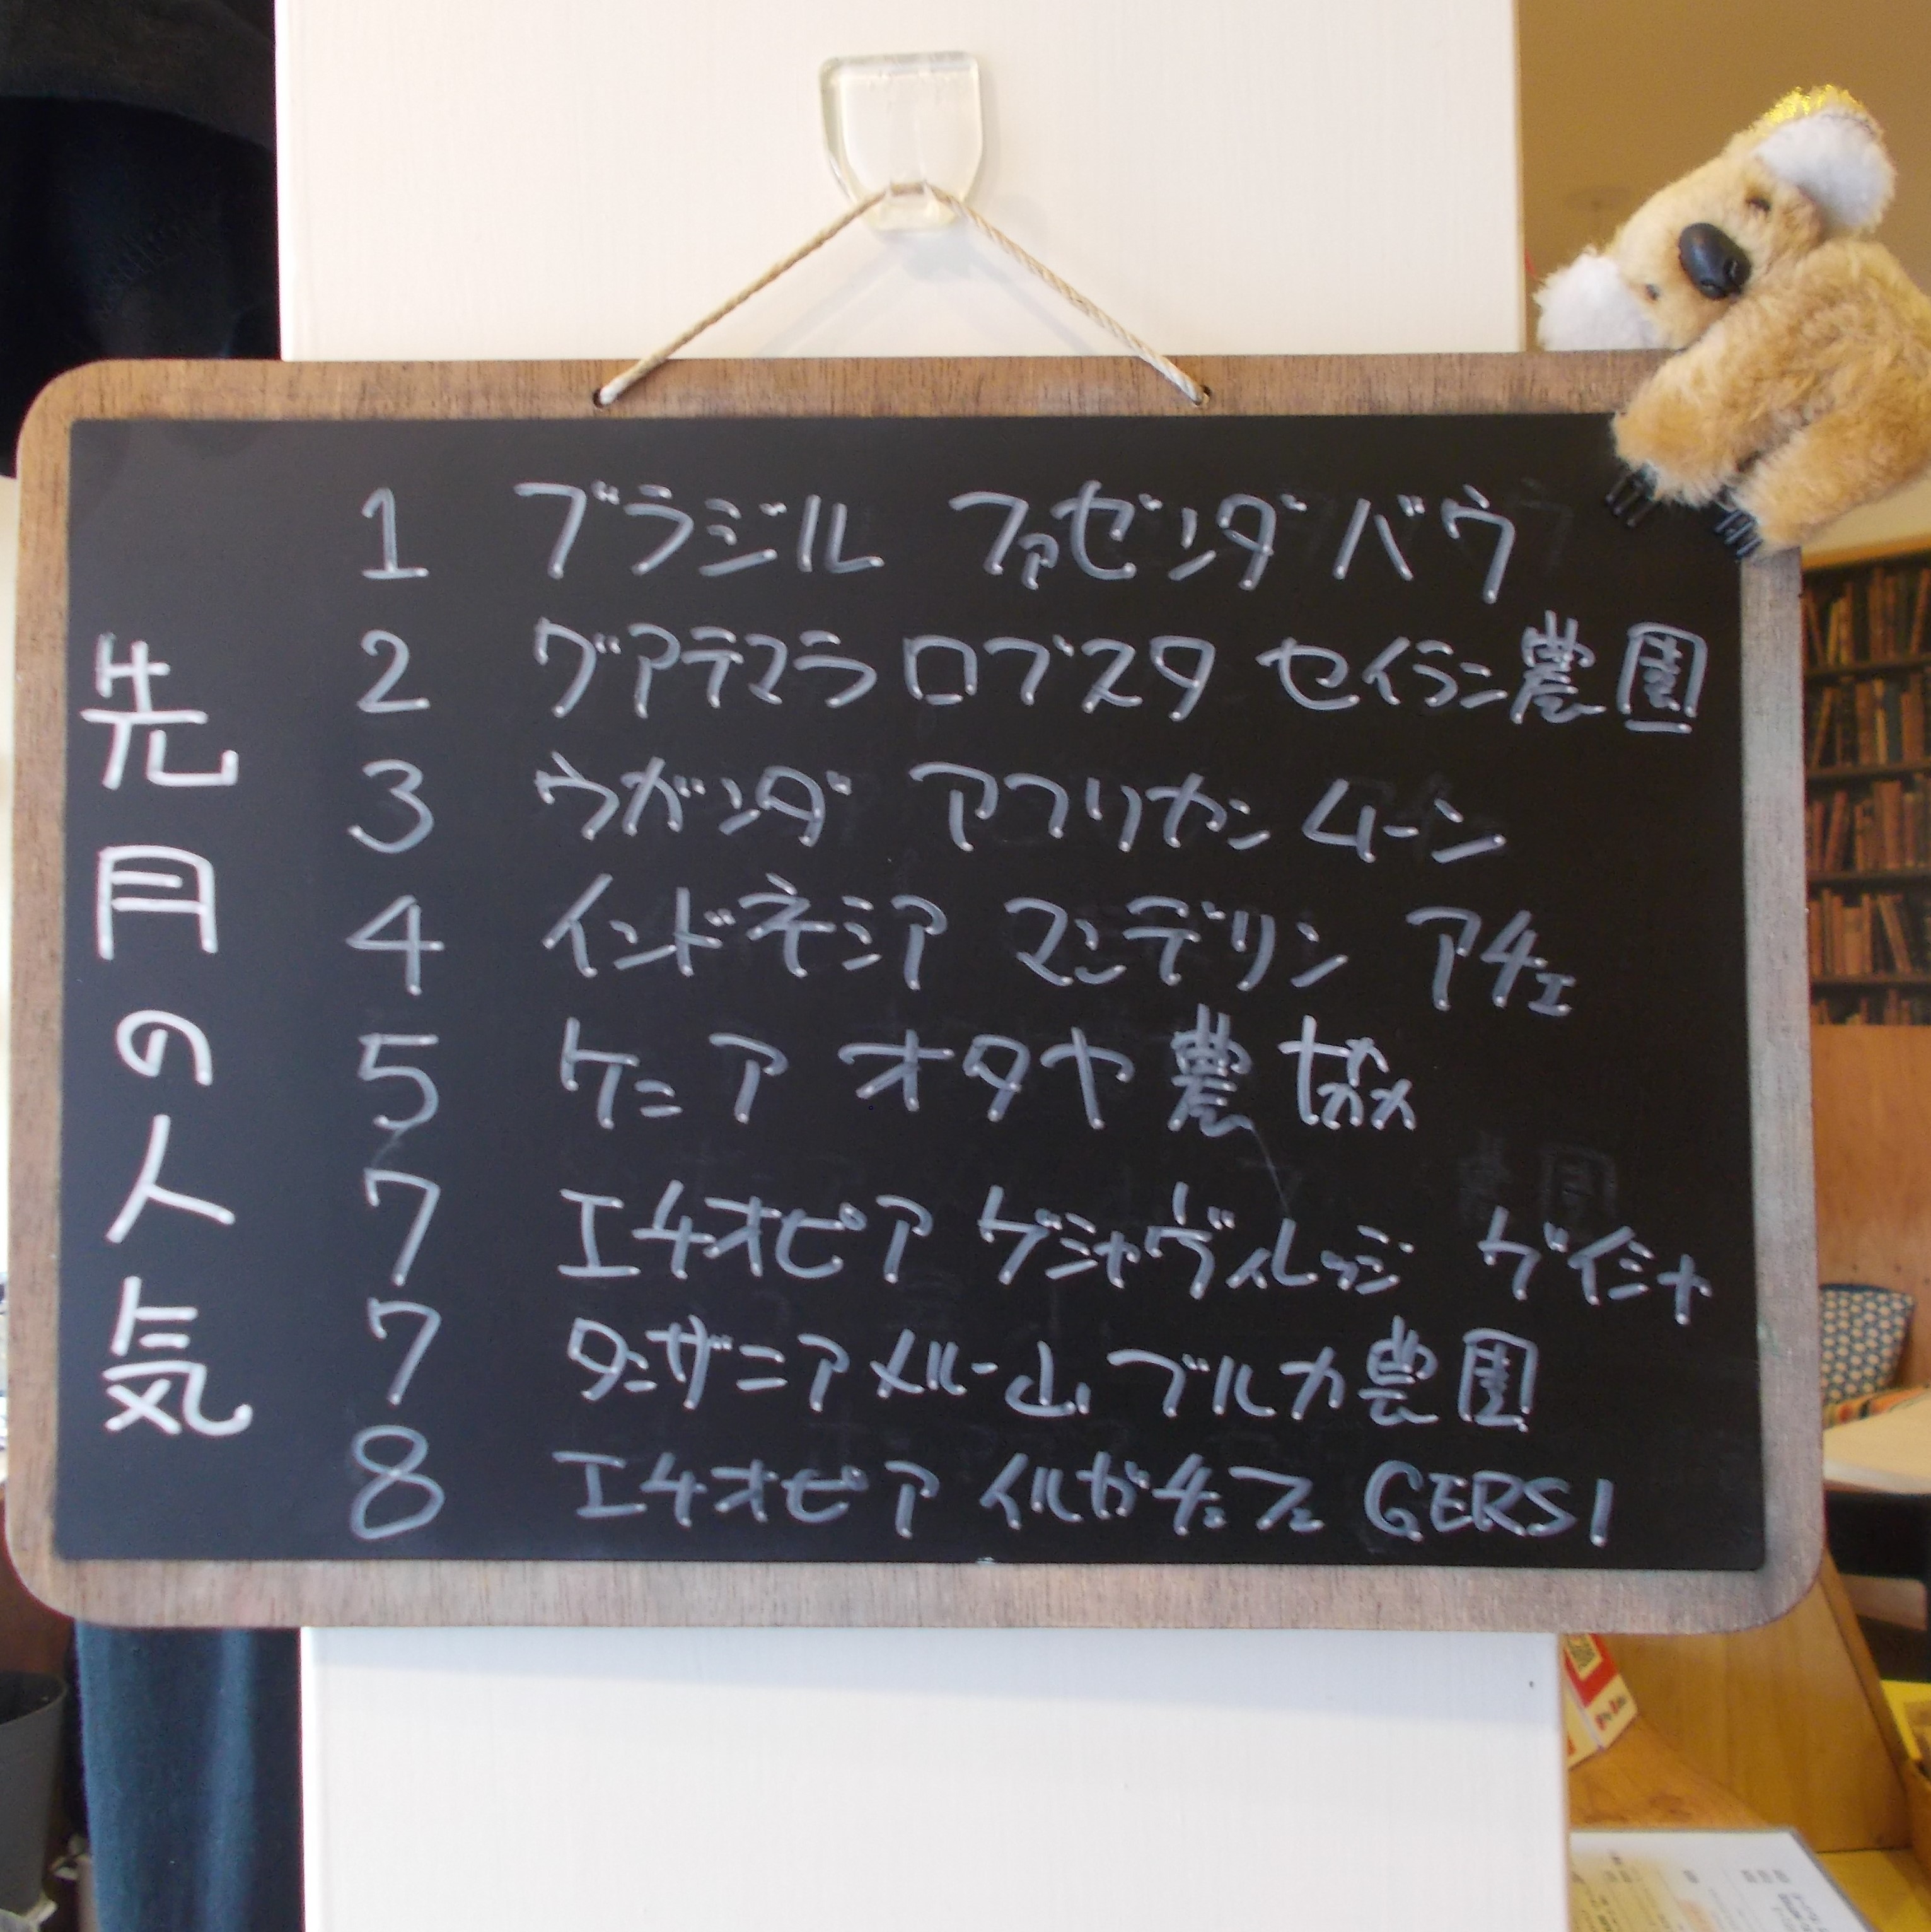 先月の人気
1 ブラジル ファゼンダ バウ
2 グアテマラ ロブスタ セイラン農園
3 ウガンダ アフリカン ムーン
4 インドネシア マンデリン アチェ
5 ケニア オタヤ農協
7 エチオピア ゲシャヴィレッジ ゲイシャ
7 タンザニア メルー山 ブルカ農園
8 エチオピア イルガチェフェ GERSI